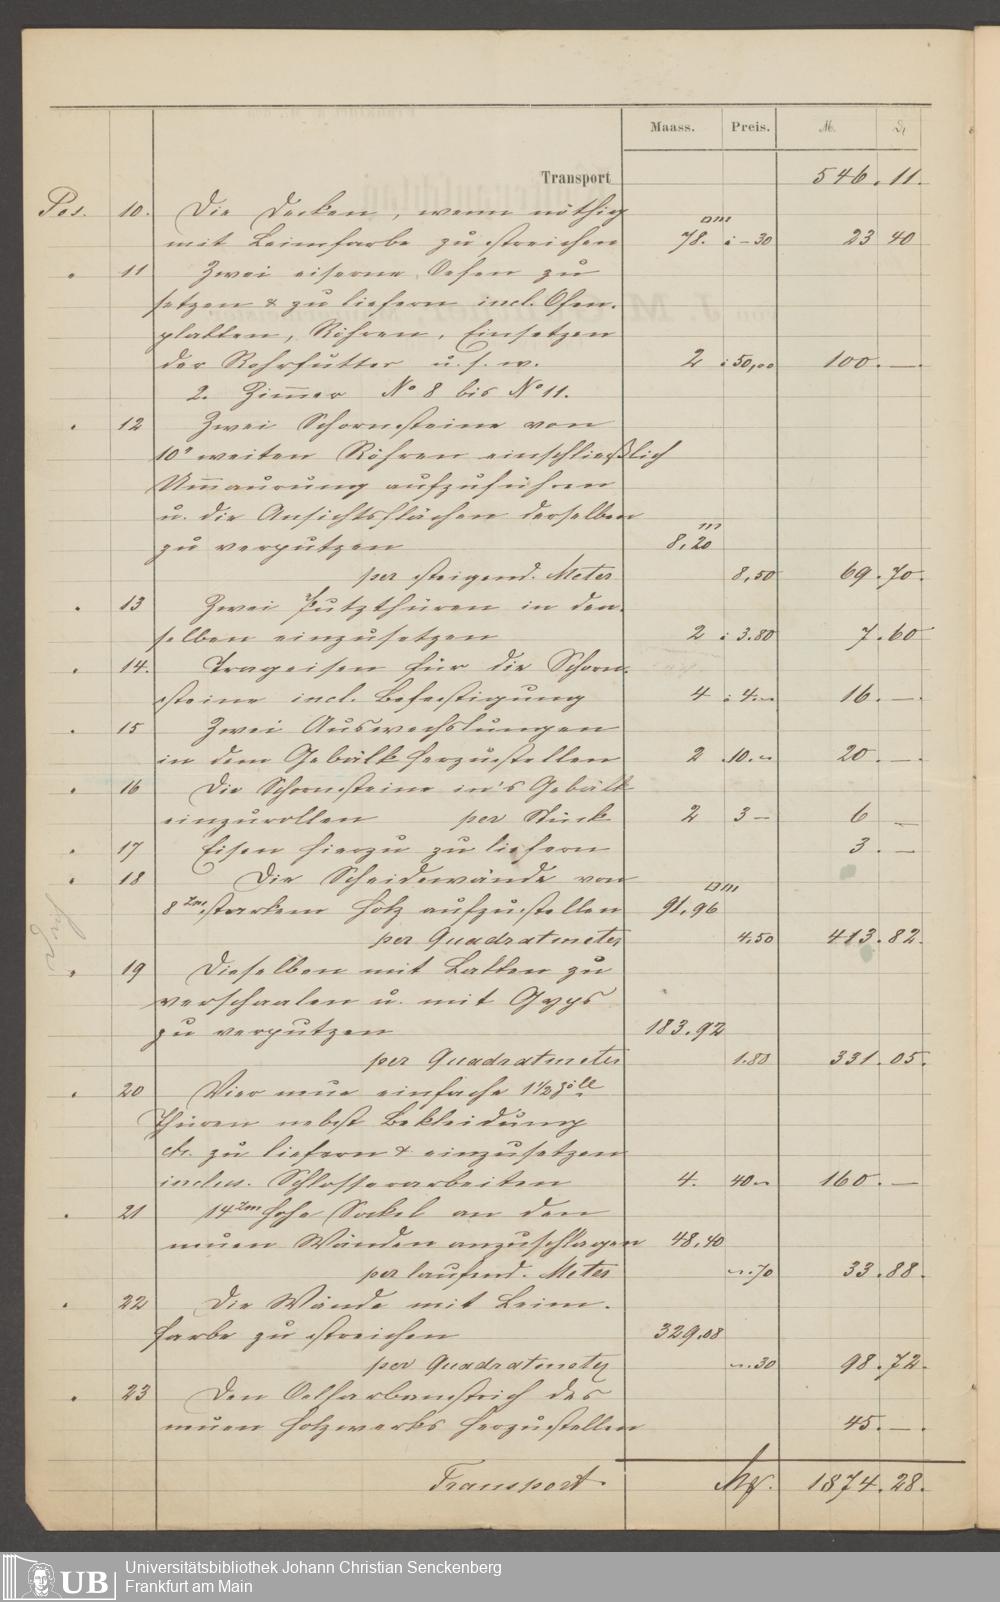 Maass. Preis. M. ₰
Transport 546. 11.
Pos. 10. Die Decken, wenn nöthig
mit Leimfarbe zu streichen 78. □m à -30 23 40
" 11 Zwei eiserne Oefen zu
setzen & zu liefern incl. Ofen-
platten, Röhren, Einsetzen
der Rohrfutter u. s. w. 2 à 50,00 100. —
2. Zimmer No 8 bis No 11.
" 12 Zwei Schornsteine von
10" weiten Röhren einschließlich
Ummaurung aufzuführen
u. die Ansichtsflächen derselben
zu verputzen 8,20 m
per steigend. Meter 8,50 69. 70.
" 13 Zwei Putzthüren in den-
selben einzusetzen 2 à 3.80 7. 60
" 14. Trageisen für die Schorn-
steine incl. Befestigung 4 à 4.— 16. —
" 15 Zwei Auswechslungen
in dem Gebälk herzustellen 2 10.— 20. —
" 16 Die Schornsteine in's Gebälk
einzurollen per Stück 2 3 — 6 —
" 17 Eisen hierzu zu liefern 3. —
" 18 Die Scheidewände von
8 Zm starkem Holz aufzustellen 91,96 □m
per Quadratmeter 4.50 413. 82.
" 19 Dieselben mit Latten zu
verschaalen u. mit Gyps
zu verputzen 183.92
per Quadratmeter 1.80 331. 05.
" 20 Vier neue einfache 1 1/2 zöll
Thüren nebst Bekleidung
etc. zu liefern & einzusetzen
inclus. Schlosserarbeiten 4. 40— 160. —
" 21 14 Zm hohe Sockel an den
neuen Wänden anzuschlagen 48,40
per laufend. Meter —.70 33. 88.
" 22 Die Wände mit Leim-
farbe zu streichen 329.08
per Quadratmeter —.30 98. 72.
" 23 Den Oelfarbanstrich des
neuen Holzwerks herzustellen 45. —.
Transport. Mk. 1874. 28.
UB
Universitätsbibliothek Johann Christian Senckenberg
Frankfurt am Main